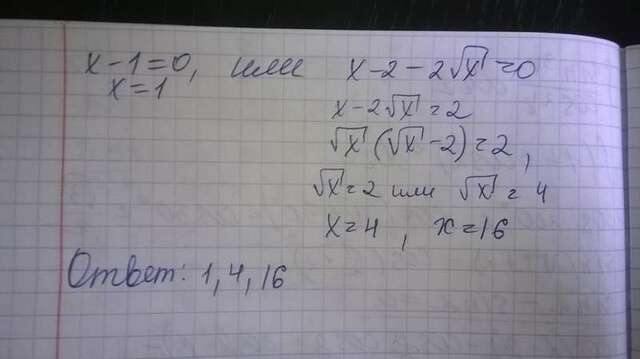 x-1=0, или x-2-2√x=0
x=1
x-2√x=2
√x(√x-2)=2,
√x=2 или √x=4
x=4, x=16
Ответ: 1,4,16